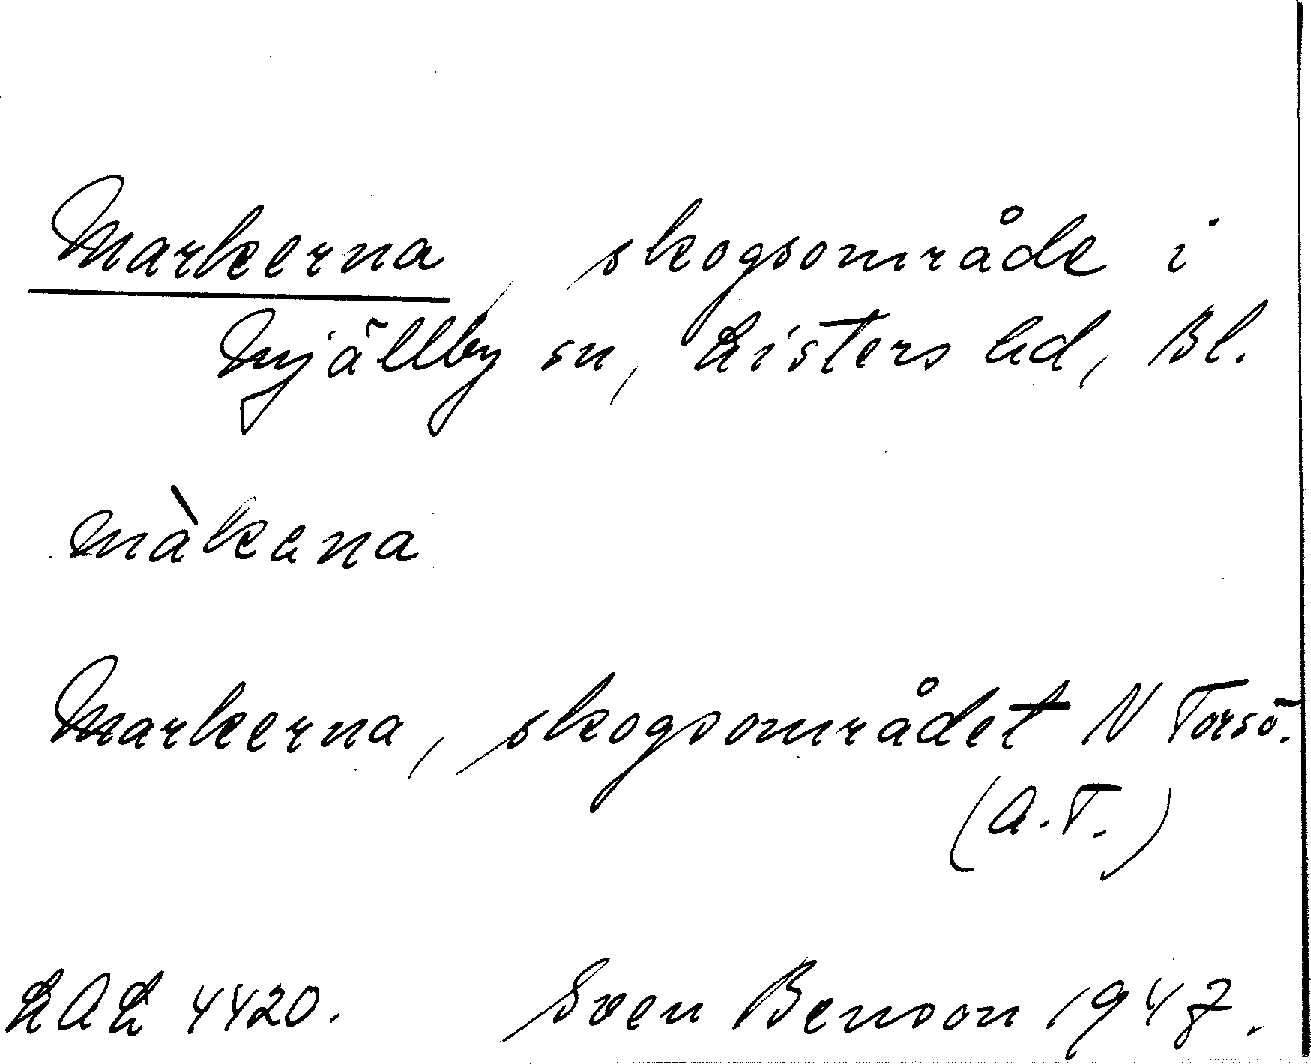 Markerna, skogsområde i
Mjällby sn, Listers hd, Bl.
màkena
Markerna, skogsområdet N Torsö.
(A.T.)
LAL 4420. Sven Benson 1947.